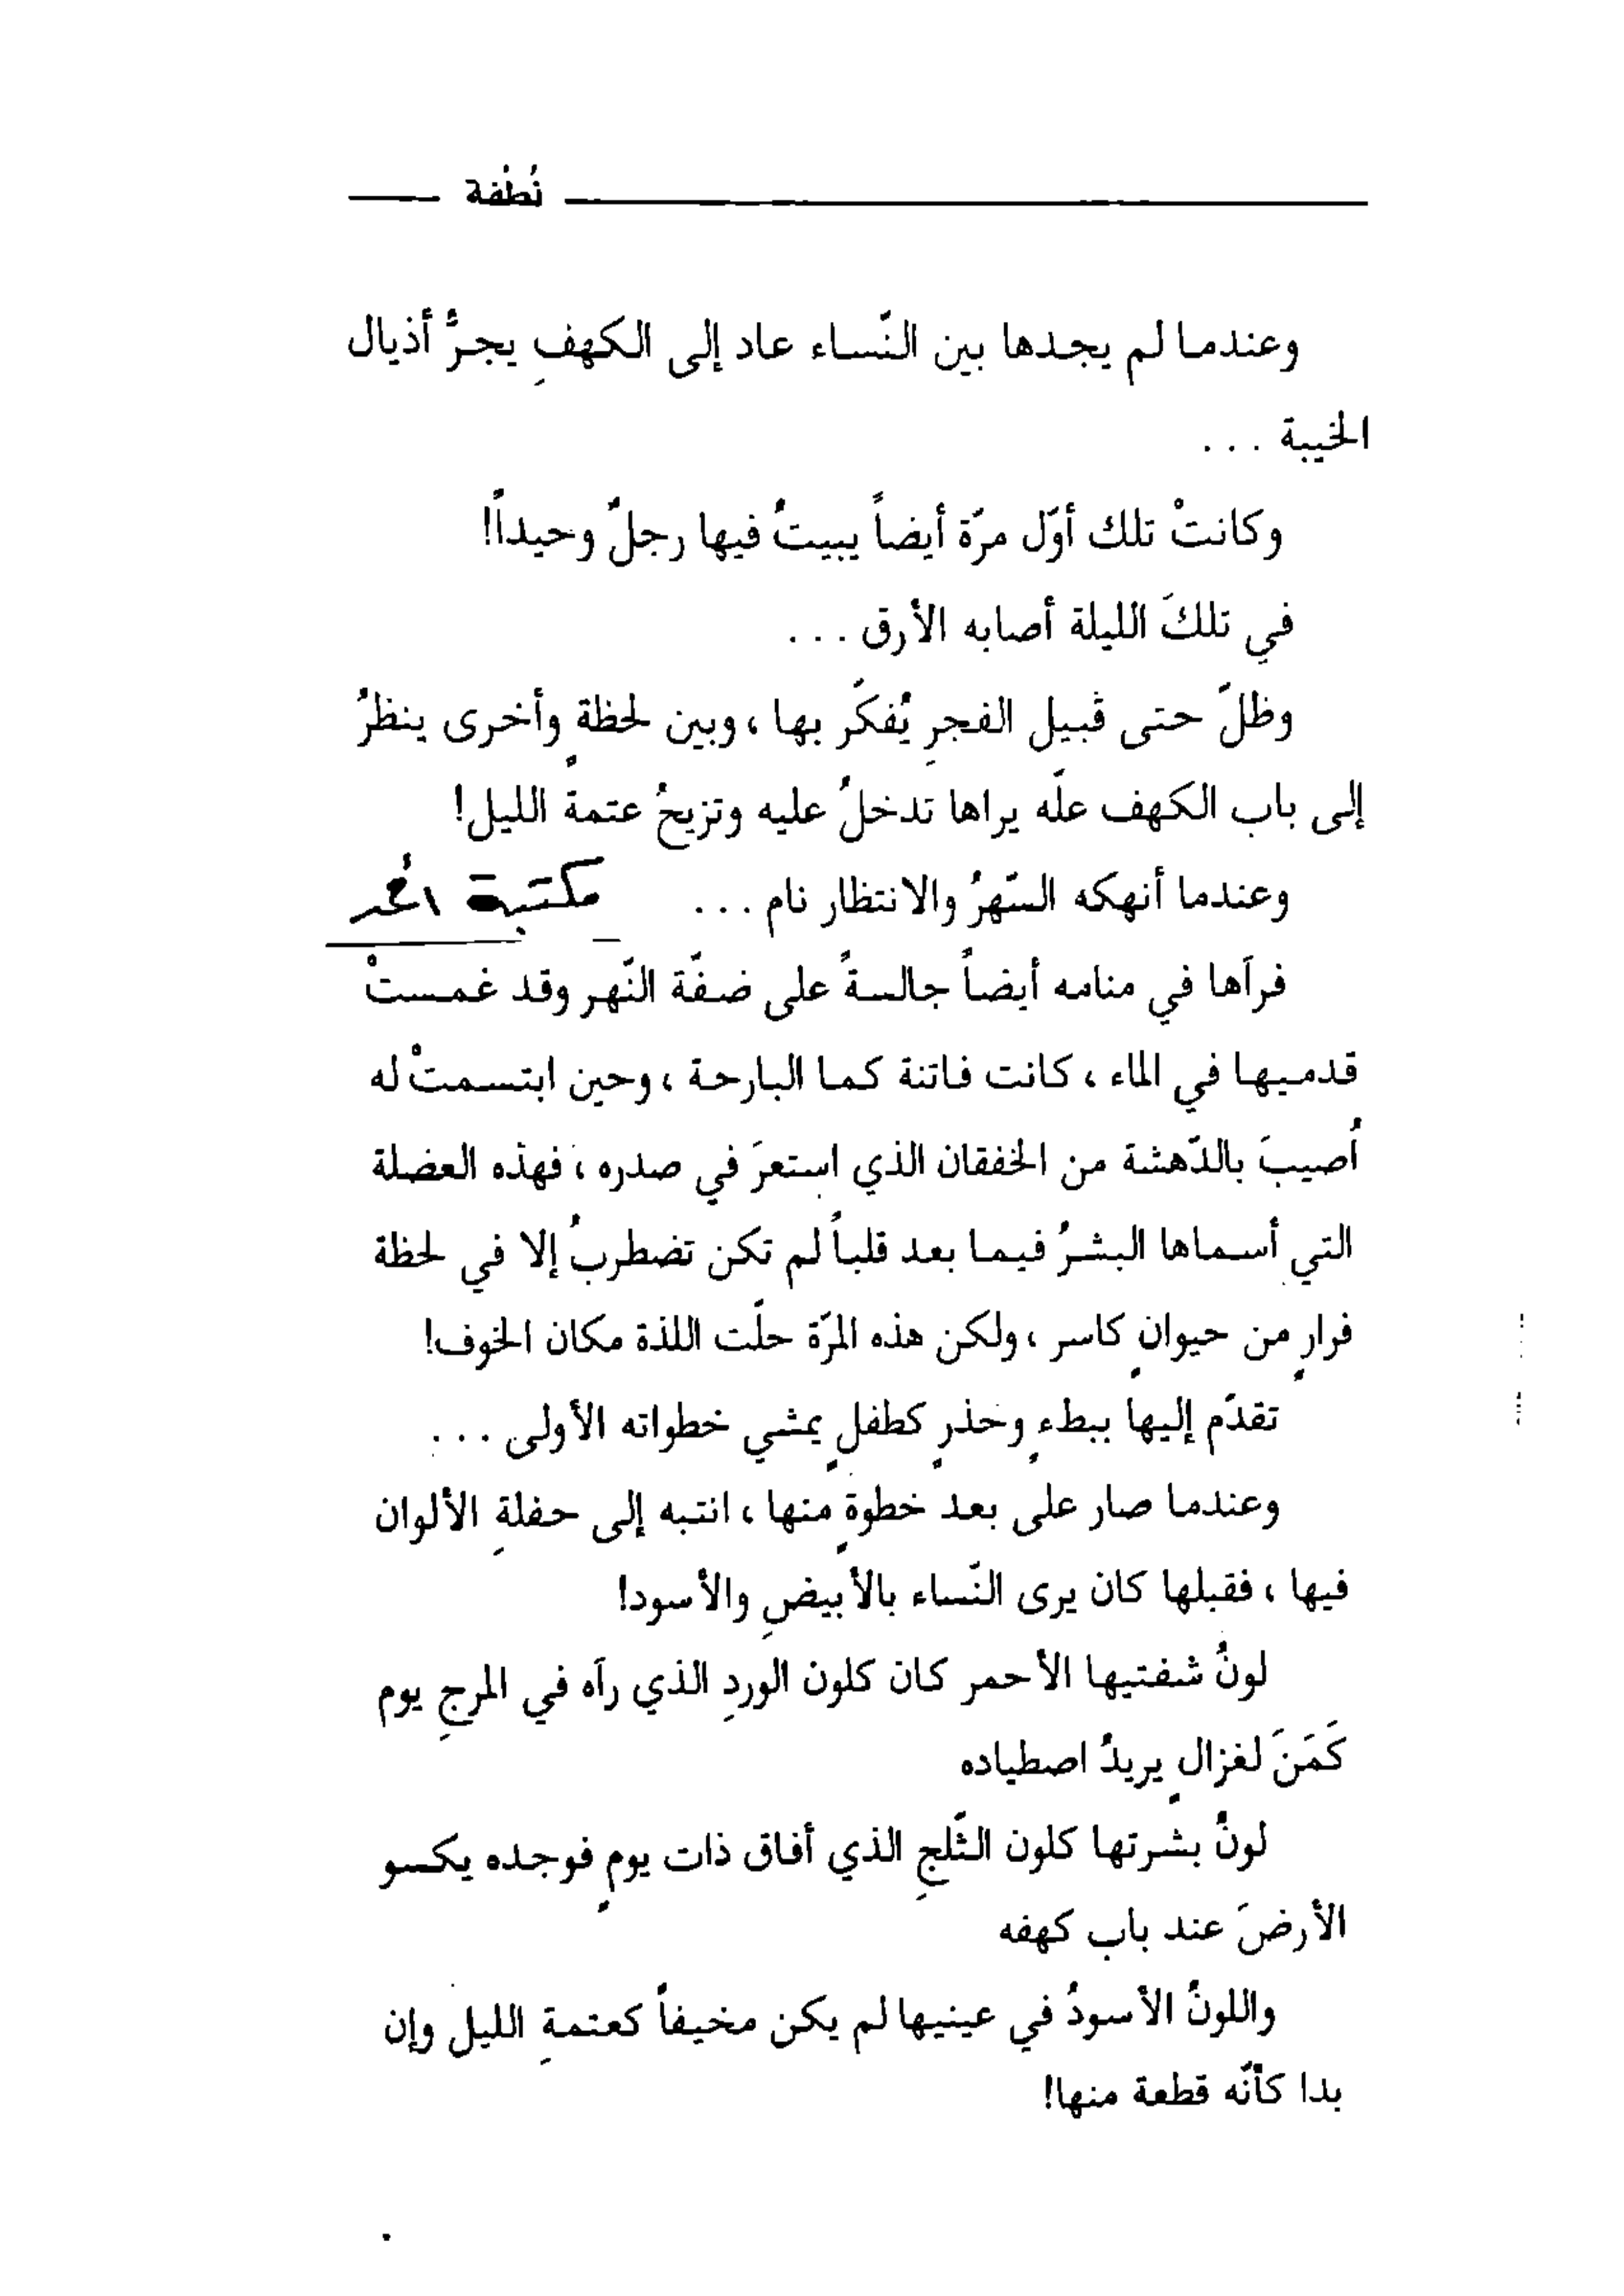 نُطْفة
وعندما لم يجدها بين النّساء عاد إلى الكهفِ يجرُّ أذيال
الخيبة . . .
وكانتْ تلك أوّل مرّة أيضاً يبيتُ فيها رجلٌ وحيداً!
في تلكَ الليلة أصابه الأرق . . .
وظلّ حتى قبيل الفجرِ يُفكّر بها ، وبين لحظةٍ وأخرى ينظرُ
إلى باب الكهف علّه يراها تدخلُ عليه وتزيحُ عتمةَ الليل!
وعندما أنهكه السّهرُ والانتظار نام . . . مكتبة
فرآها في منامه أيضاً جالسةً على ضفّة النّهر وقد غمستْ
قدميها في الماء ، كانت فاتنة كما البارحة ، وحين ابتسمتْ له
أُصيبَ بالدّهشة من الخفقان الذي استعرَ في صدره ، فهذه العضلة
التي أسماها البشرُ فيما بعد قلباً لم تكن تضطربُ إلا في لحظة
فرارٍ من حيوانٍ كاسر ، ولكن هذه المرّة حلّت اللذة مكان الخوف!
تقدّم إليها ببطءٍ وحذرٍ كطفلٍ يمشي خطواته الأولى . . .
وعندما صار على بعد خطوةٍ منها ، انتبه إلى حفلةِ الألوان
فيها ، فقبلها كان يرى النّساء بالأبيضِ والأسود!
لونُ شفتيها الأحمر كان كلون الوردِ الذي رآه في المرجِ يوم
كَمَنَ لغزالٍ يريدُ اصطياده
لونُ بشرتها كلون الثّلجِ الذي أفاق ذات يومٍ فوجده يكسو
الأرضَ عند باب كهفه
واللونُ الأسودُ في عينيها لم يكن مخيفاً كعتمةِ الليل وإن
بدا كأنّه قطعة منها!